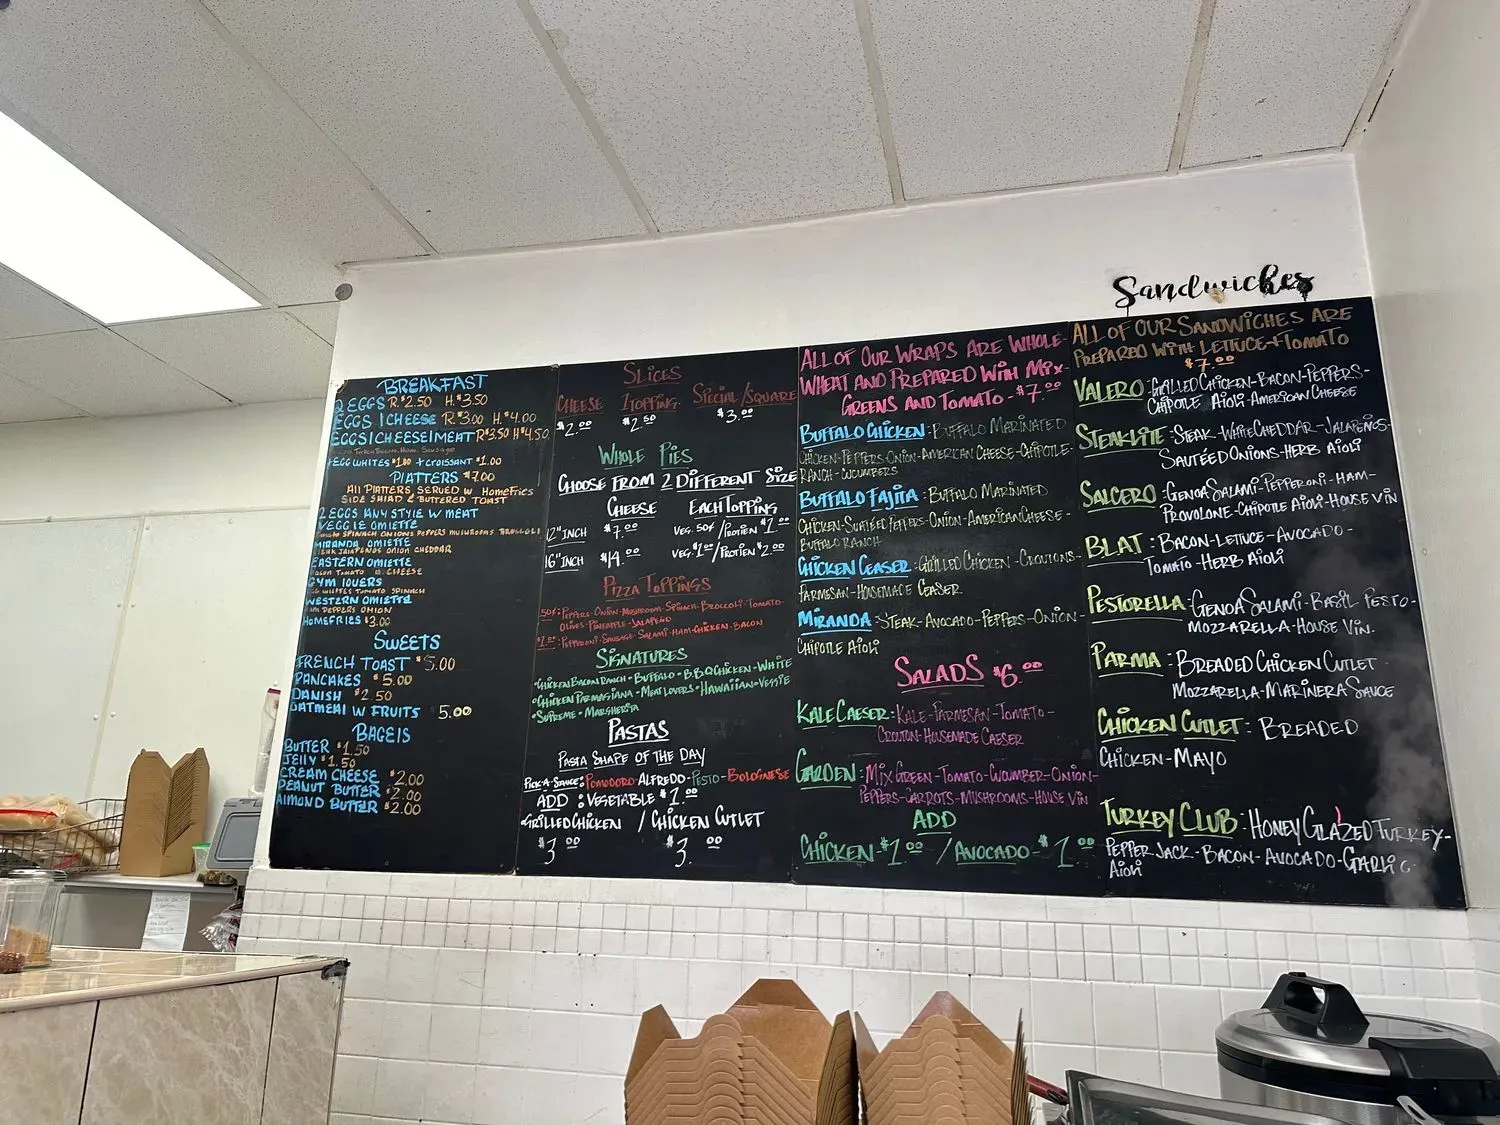 Sandwiches
BREAKFAST
2 EGGS R.$2.50 H.$3.50
EGGS | CHEESE R.$3.00 H.$4.00
EGGS|CHEESE|MEAT R$3.50 H$4.50
+EGG WHITES $1.00 + CROISSANT $1.00
PLATTERS $7.00
All PLATTERS SERVED W HomeFries
SIDE SALAD & BUTTERED TOAST
2 EGGS ANY STYLE W MEAT
VEGGIE OMLETTE
TOMATO SPINACH ONIONS PEPPERS MUSHROOMS BROCCOLI
MIRANDA OMLETTE
STEAK JALAPENOS ONION CHEDDAR
EASTERN OMLETTE
BACON TOMATO W. CHEESE
GYM LOVERS
EGG WHITES TOMATO SPINACH
WESTERN OMLETTE
HAM PEPPERS ONION
HOMEFRIES $3.00
SWEETS
FRENCH TOAST $5.00
PANCAKES $5.00
DANISH $2.50
OATMEAL W FRUITS 5.00
BAGELS
BUTTER $1.50
JELLY $1.50
CREAM CHEESE $2.00
PEANUT BUTTER $2.00
ALMOND BUTTER $2.00
SLICES
CHEESE 1TOPPING SPECIAL/SQUARE
$2.00 $2.50 $3.00
WHOLE PIES
CHOOSE FROM 2 DIFFERENT SIZE
CHEESE EACH TOPPING
12" INCH $7.00 VEG. 50¢/PROTIEN $1.00
16" INCH $14.00 VEG. $1.00/PROTIEN $2.00
PIZZA TOPPINGS
50¢: PEPPERS-ONION-MUSHROOM-SPINACH-BROCCOLI-TOMATO-
OLIVES-PINEAPPLE-JALAPEÑO
$1.00: PEPPERONI-SAUSAGE-SALAMI-HAM-CHICKEN-BACON
SIGNATURES
•CHICKEN BACON RANCH-BUFFALO-B.B.Q CHICKEN-WHITE
•CHICKEN PARMASIANA-MEAT LOVERS-HAWAIIAN-VEGGIE
•SUPREME-MARGHERITA
PASTAS
PASTA SHAPE OF THE DAY
PICK-A-SAUCE: POMODORO-ALFREDO-PESTO-BOLOGNESE
ADD: VEGETABLE $1.00
GRILLED CHICKEN / CHICKEN CUTLET
$3.00 $3.00
ALL OF OUR WRAPS ARE WHOLE-
WHEAT AND PREPARED WITH MIX-
GREENS AND TOMATO-$7.00
BUFFALO CHICKEN: BUFFALO MARINATED
CHICKEN-PEPPERS-ONION-AMERICAN CHEESE-CHIPOTLE-
RANCH-CUCUMBERS
BUFFALO FAJITA: BUFFALO MARINATED
CHICKEN-SUATÉED PEPPERS-ONION-AMERICAN CHEESE-
BUFFALO RANCH
CHICKEN CEASER: GRILLED CHICKEN-CROUTONS-
PARMESAN-HOUSEMADE CEASER
MIRANDA: STEAK-AVOCADO-PEPPERS-ONION-
CHIPOTLE AIOLI
SALADS $6.00
KALE CAESER: KALE-PARMESAN-TOMATO-
CROUTON-HOUSEMADE CAESER
GARDEN: MIX GREEN-TOMATO-CUCUMBER-ONION-
PEPPERS-CARROTS-MUSHROOMS-HOUSE VIN
ADD
CHICKEN-$1.00 / AVOCADO-$1.00
ALL OF OUR SANDWICHES ARE
PREPARED WITH LETTUCE+TOMATO
$7.00
VALERO: GRILLED CHICKEN-BACON-PEPPERS-
CHIPOTLE AIOLI-AMERICAN CHEESE
STEAKLITE: STEAK-WHITE CHEDDAR-JALAPEÑOS-
SAUTÉED ONIONS-HERB AIOLI
SALCERO: GENOA SALAMI-PEPPERONI-HAM-
PROVOLONE-CHIPOTLE AIOLI-HOUSE VIN
BLAT: BACON-LETTUCE-AVOCADO-
TOMATO-HERB AIOLI
PESTORELLA: GENOA SALAMI-BASIL PESTO-
MOZZARELLA-HOUSE VIN.
PARMA: BREADED CHICKEN CUTLET
MOZZARELLA-MARINERA SAUCE
CHICKEN CUTLET: BREADED
CHICKEN-MAYO
TURKEY CLUB: HONEY GLAZED TURKEY-
PEPPER JACK-BACON-AVOCADO-GARLIC
AIOLI